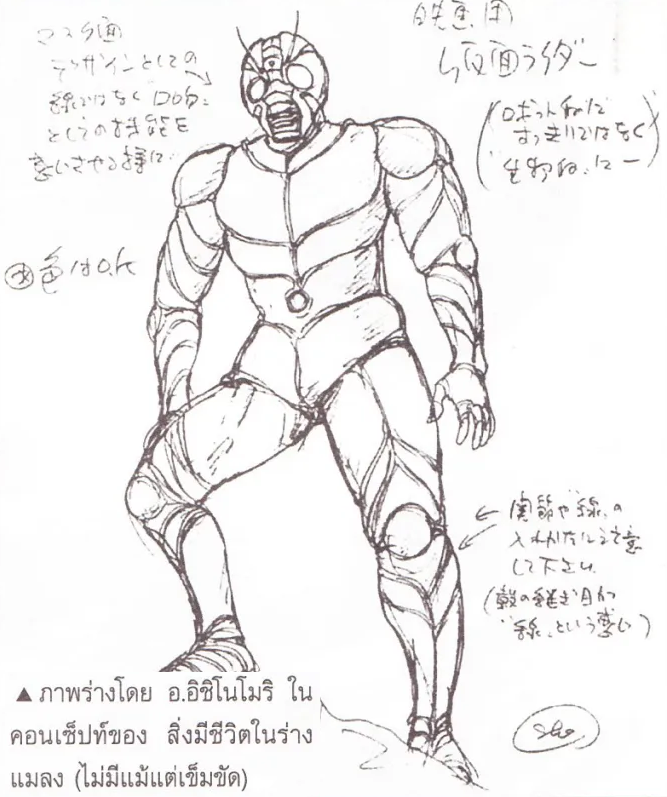 マスク面
デッサインとしての
線ではなく 口の分.
としての機能を
思いさせる様に.
映画用
仮面ライダー
(ロボット的に
すっきりではなく
生物的.に ー)
色はO.K
← 関節や線の
入れかたに注意
して下さい
(殻の継ぎ目が
"線"という感じ)
▲ ภาพร่างโดย อ.อิชิโนโมริ ใน
คอนเซ็ปท์ของ สิ่งมีชีวิตในร่าง
แมลง (ไม่มีแม้แต่เข็มขัด)